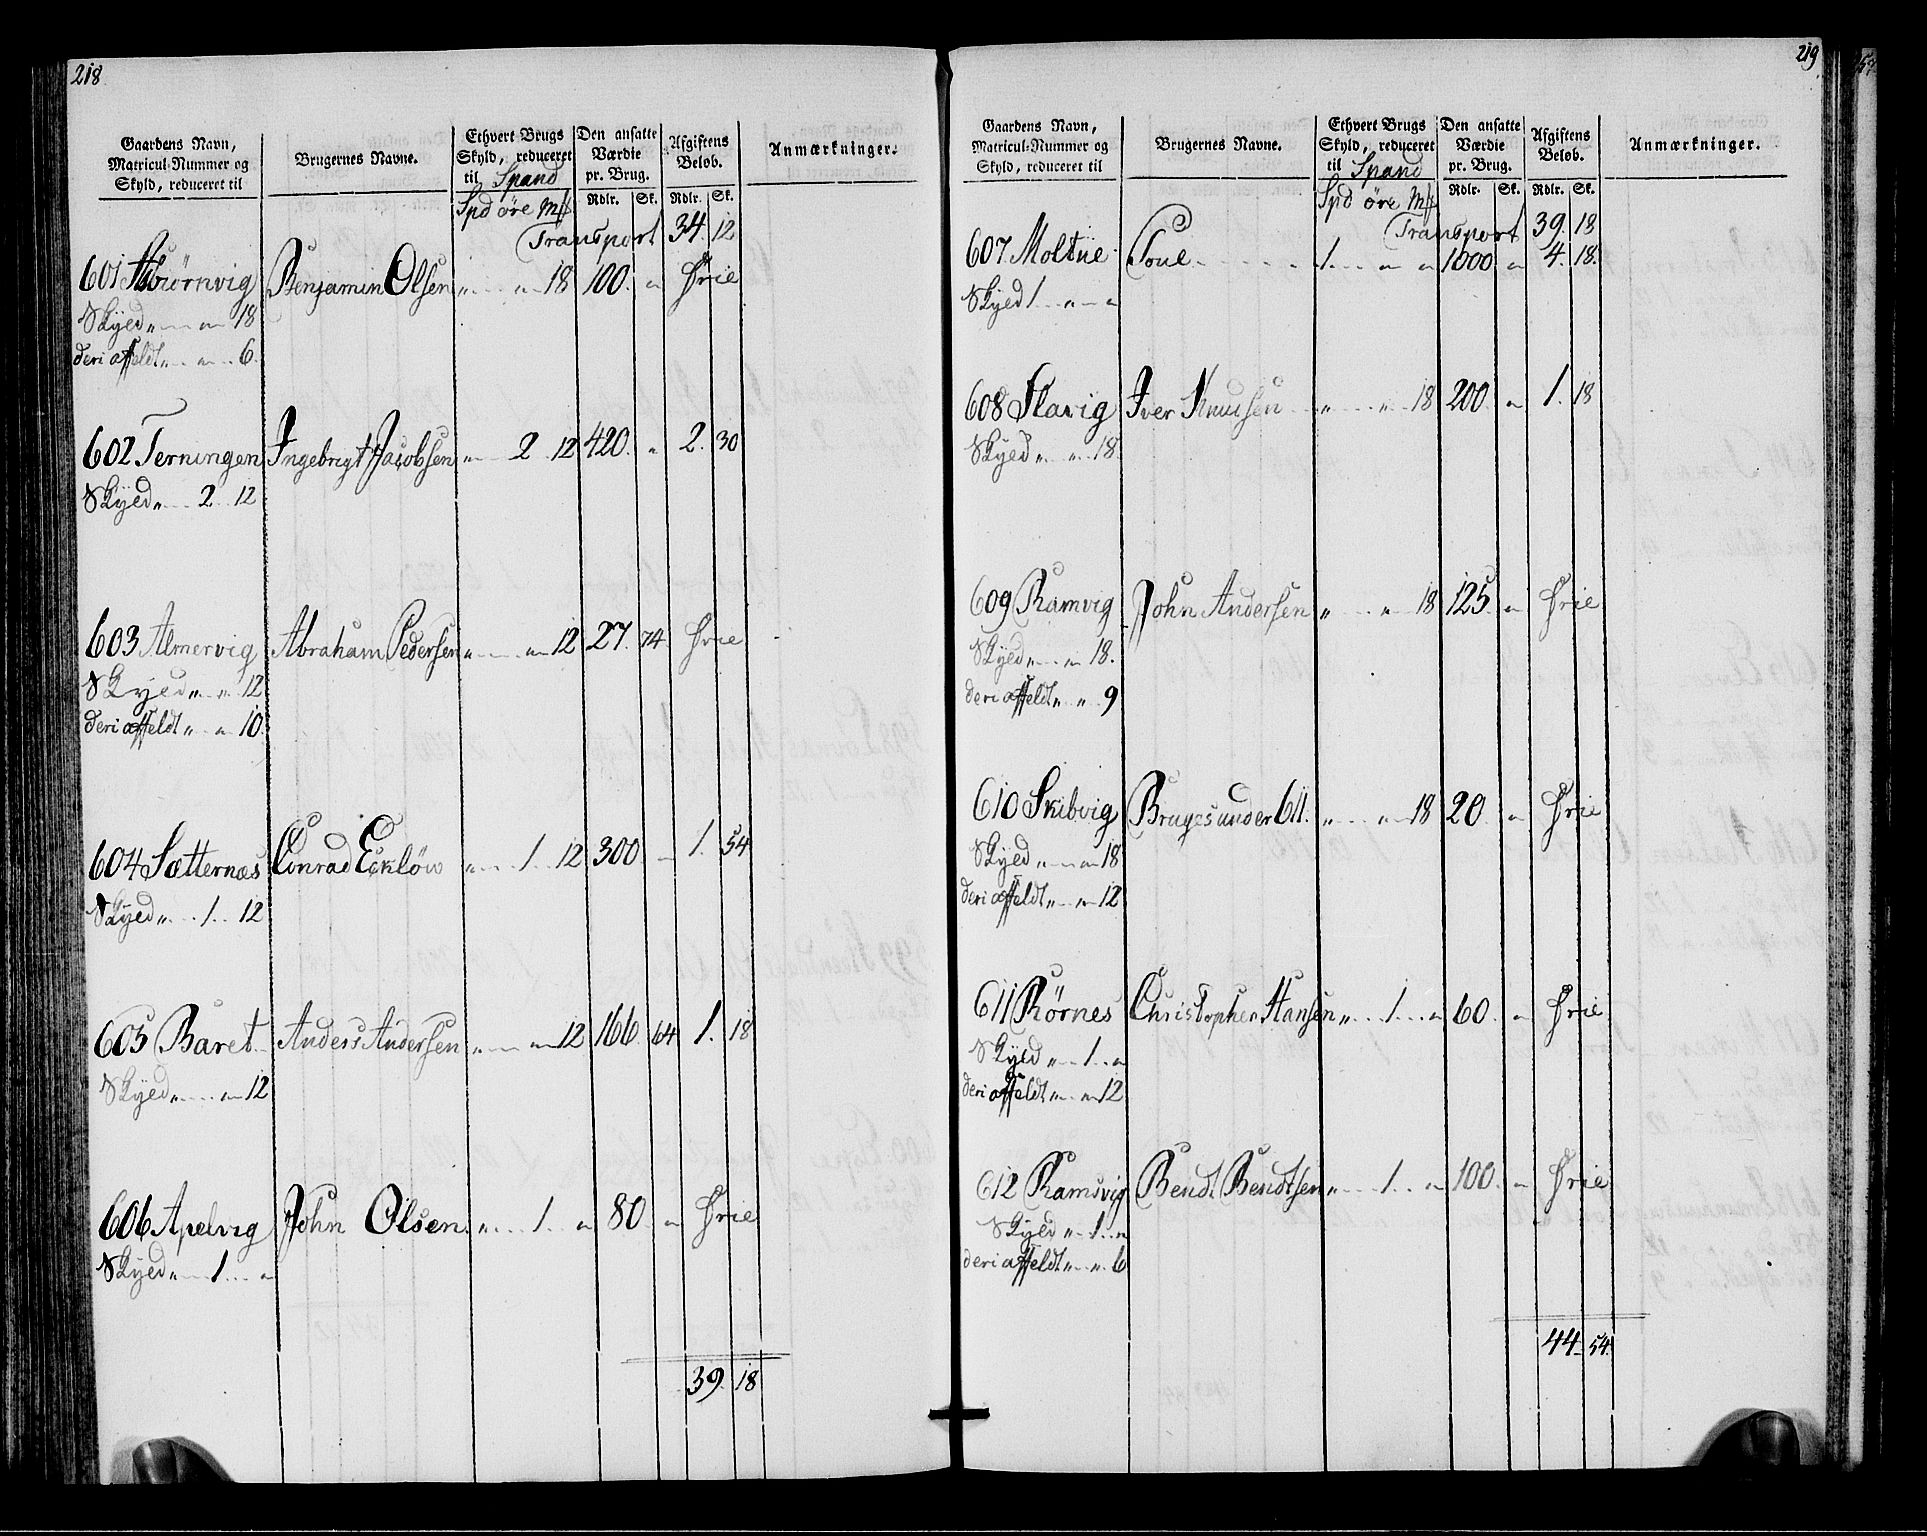 218
Gaardens Navn, Matricul-Nummer og Skyld, reduceret til
Brugernes Navne.
Ethvert Brugs Skyld, reduceret til Spand
Den ansatte Værdie pr. Brug.
Afgiftens Beløb.
Anmærkninger.
Spd öre Mk Rdlr. Sk. Rdlr. Sk.
Transport 34. 12
601 Asbiörnvig Benjamin Olsen " " 18 100. " Frie
Skyed " " 18
deri affeldt " " 6.
602 Terningen Ingebrigt Jacobsen " 2 12 420. " 2. 30
Skyed " 2 12
603 Almervig Abraham Pedersen " " 12 27. 74 Frie
Skyed " " 12
deri affeldt " " 10.
604 Sætternæs Conrad Ecklöw " 1 12 300 " 1. 54
Skyed " 1 12
605 Baret Anders Andersen " " 12 166 64 1. 18
Skyed " " 12
606 Apelvig John Olsen " 1 " 80 " Frie
Skyed " 1 "
39. 18
219
Gaardens Navn, Matricul-Nummer og Skyld, reduceret til
Brugernes Navne.
Ethvert Brugs Skyld, reduceret til Spand
Den ansatte Værdie pr. Brug.
Afgiftens Beløb.
Anmærkninger.
Spd öre Mk Rdlr. Sk. Rdlr. Sk.
Transport 39. 18
607 Moltue 1 " " 1000 " 4. 18.
Skyed 1 " "
608 Flavig Iver Knudsen " " 18 200 " 1. 18
Skyed " " 18.
609 Ramvig John Andersen " " 18 125. " Frie
Skyed " " 18.
deri affeldt " " 9
610 Skibvig Bruges under 611. " " 18 20. " Frie
Skyed " " 18
deri affeldt " " 12
611 Rörnes Christopher Hansen " 1 " 60 " Frie
Skyed " 1 "
deri affeldt " " 12
612 Ramsvig Bendt Bendtsen " 1 " 100 " Frie
Skyed " 1 "
deri affeldt " " 6
44. 54.